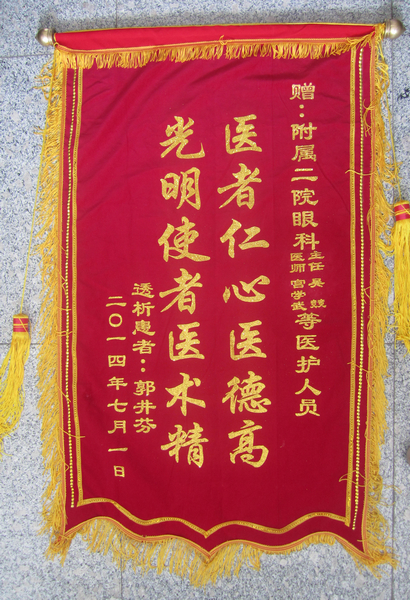 赠：附属二院眼科主任吴兢医师宫学武等医护人员
医者仁心医德高
光明使者医术精
透析患者：郭井芬
二〇一四年七月一日